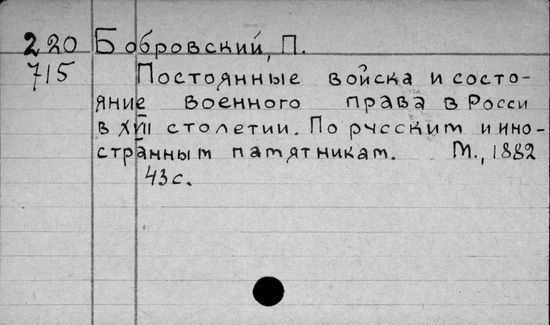 220 Бобровский, П.
715 Постоянные войска и состо-
яние военного права в Росси
в XVII столетии. По русским и ино-
странным памятникам. М., 1882
43 с.